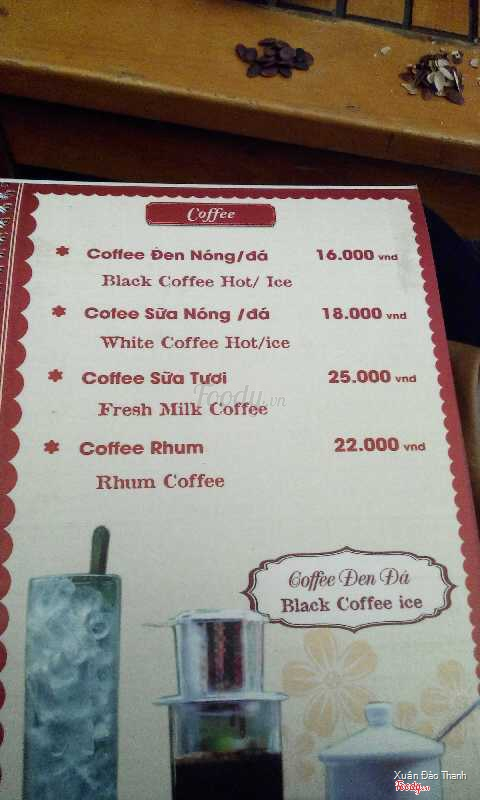 Coffee
Coffee Đen Nóng/đá 16.000 vnd
Black Coffee Hot/ Ice
Cofee Sữa Nóng /đá 18.000 vnd
White Coffee Hot/ice
Coffee Sữa Tươi 25.000 vnd
Foody.vn
Fresh Milk Coffee
Coffee Rhum 22.000 vnd
Rhum Coffee
Coffee Đen Đá
Black Coffee ice
Xuân Đào Thanh
Foody.vn